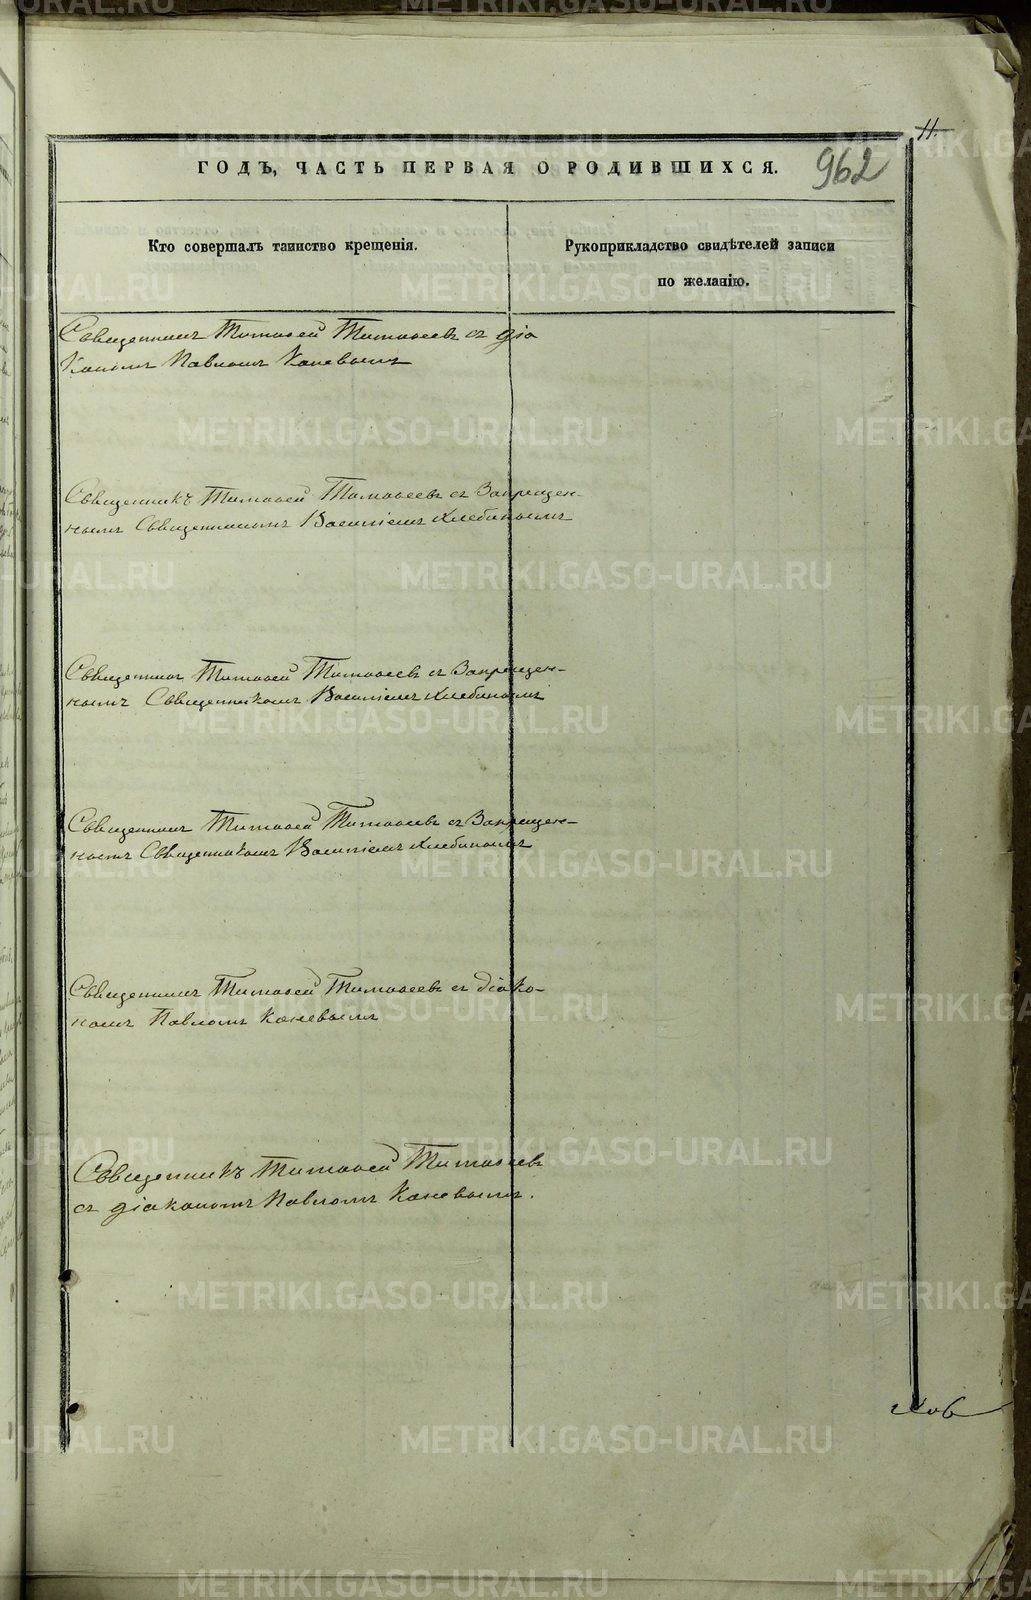 11.
ГОДЪ, ЧАСТЬ ПЕРВАЯ О РОДИВШИХСЯ.
962
Кто совершалъ таинство крещенія.
Рукоприкладство свидѣтелей записи
по желанію.
Священникъ Тимофей Тимофеевъ съ діа
кономъ Павломъ Каневымъ
Священникъ Тимофей Тимофеевъ съ Запрещен-
нымъ Священникомъ Василіемъ Хлебинымъ
Священникъ Тимофей Тимофеевъ съ Запрещен-
нымъ Священникомъ Василіемъ Хлебинымъ
Священникъ Тимофей Тимофеевъ съ Запрещен-
нымъ Священникомъ Василіемъ Хлебинымъ
Священникъ Тимофей Тимофеевъ съ діако-
номъ Павломъ Каневымъ
Священникъ Тимофей Тимофеевъ
съ діакономъ Павломъ Каневымъ.
METRIKI.GASO-URAL.RU